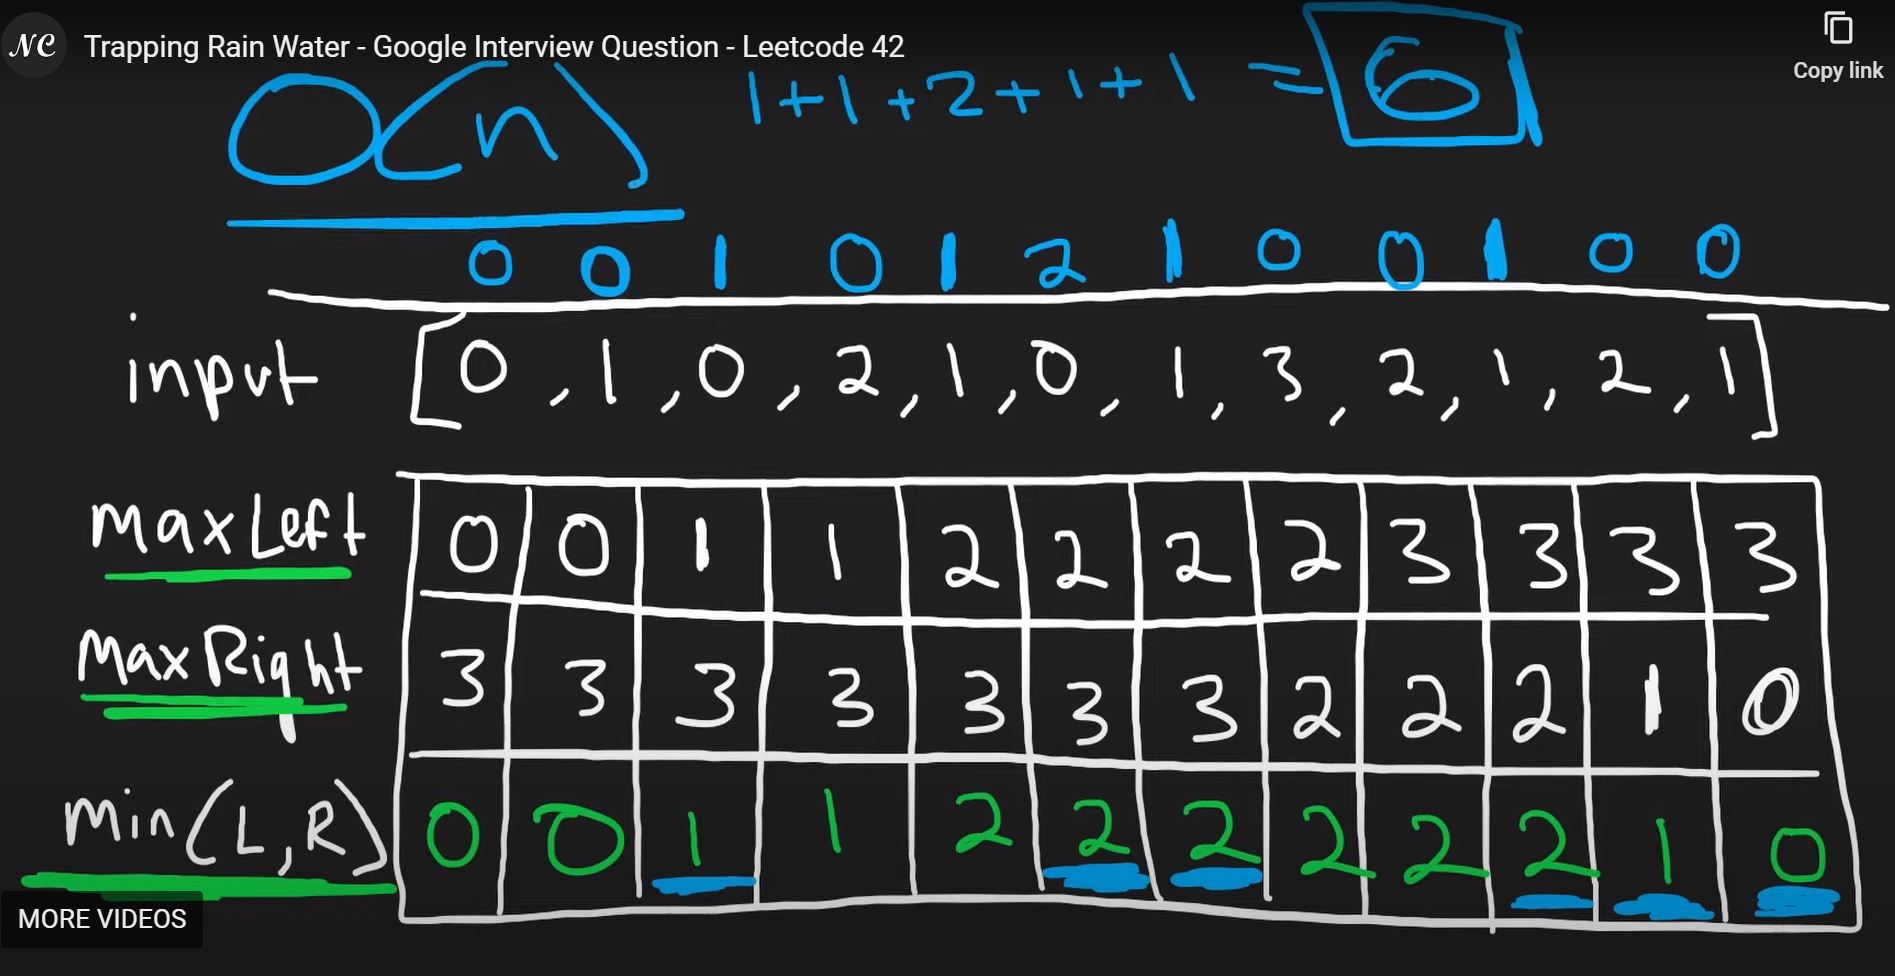 NC Trapping Rain Water - Google Interview Question - Leetcode 42
Copy link
O(n) 1+1+2+1+1 = 6
0 0 1 0 1 2 1 0 0 1 0 0
input [0,1,0,2,1,0,1,3,2,1,2,1]
maxLeft 0 0 1 1 2 2 2 2 3 3 3 3
MaxRight 3 3 3 3 3 3 3 2 2 2 1 0
min(L,R) 0 0 1 1 2 2 2 2 2 2 1 0
MORE VIDEOS